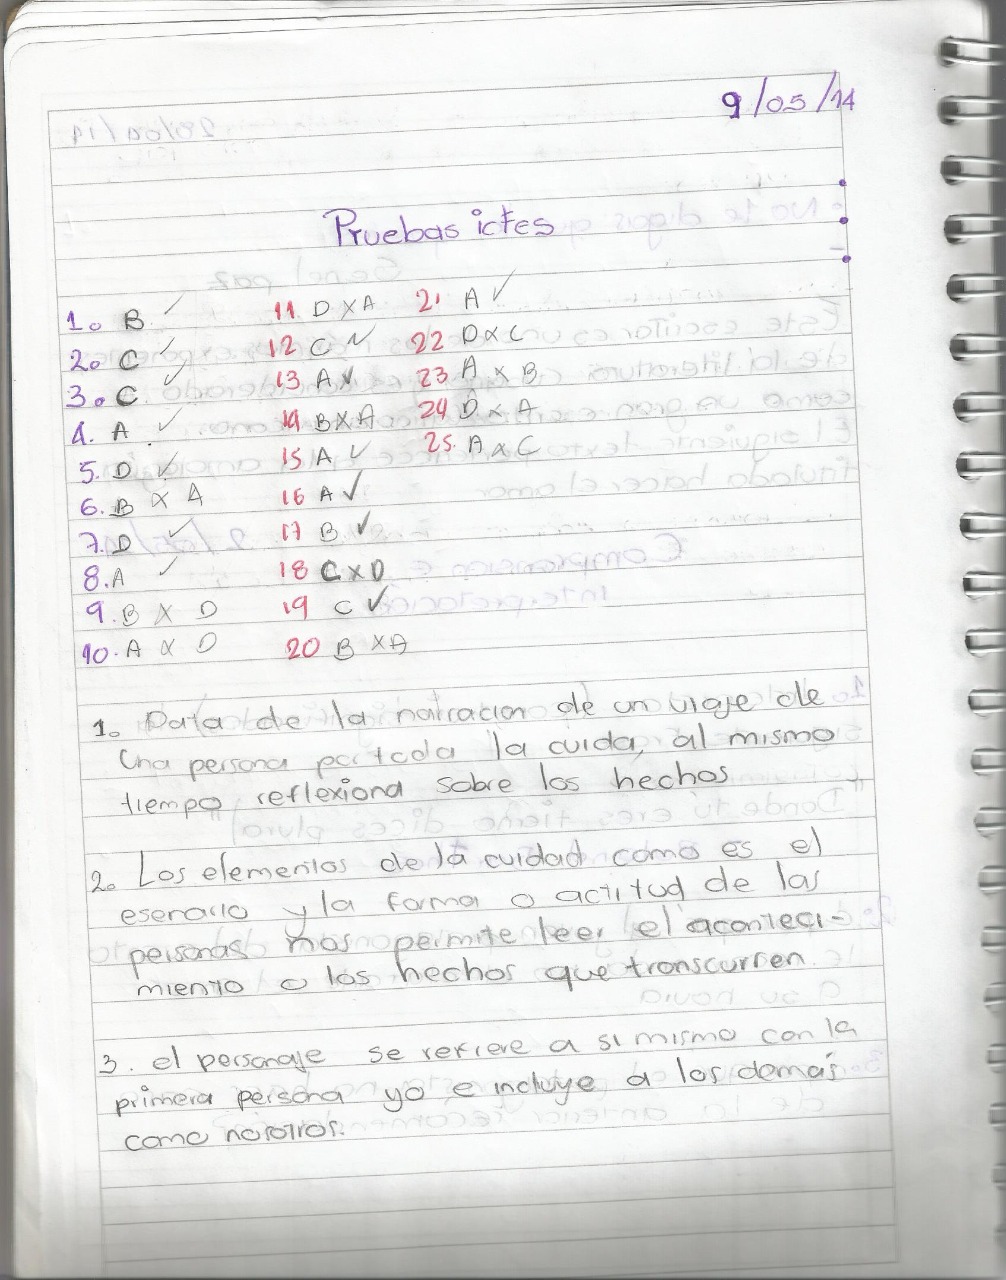 9/05/14
Pruebas icfes
1. B ✓ 11. D X A 21 A ✓
2. C ✓ 12 C ✓ 22 D X C
3. C ✓ 13 A ✓ 23 A X B
4. A ✓ 14 B X A 24 D X A
5. D ✓ 15 A ✓ 25. A X C
6. B X A 16 A ✓
7. D ✓ 17 B ✓
8. A ✓ 18 C X D
9. B X D 19 C ✓
10. A X D 20 B X A
1. Data de la narracion de un viaje de
Una persona por toda la cuida, al mismo
tiempo reflexiona sobre los hechos
2. Los elementos de la cuidad como es el
esenario y la forma o actitud de las
personas nos permite leer el aconteci-
miento o los hechos que transcurren.
3. el personaje se refiere a si mismo con la
primera persona yo e incluye a los demás
como nosotros.